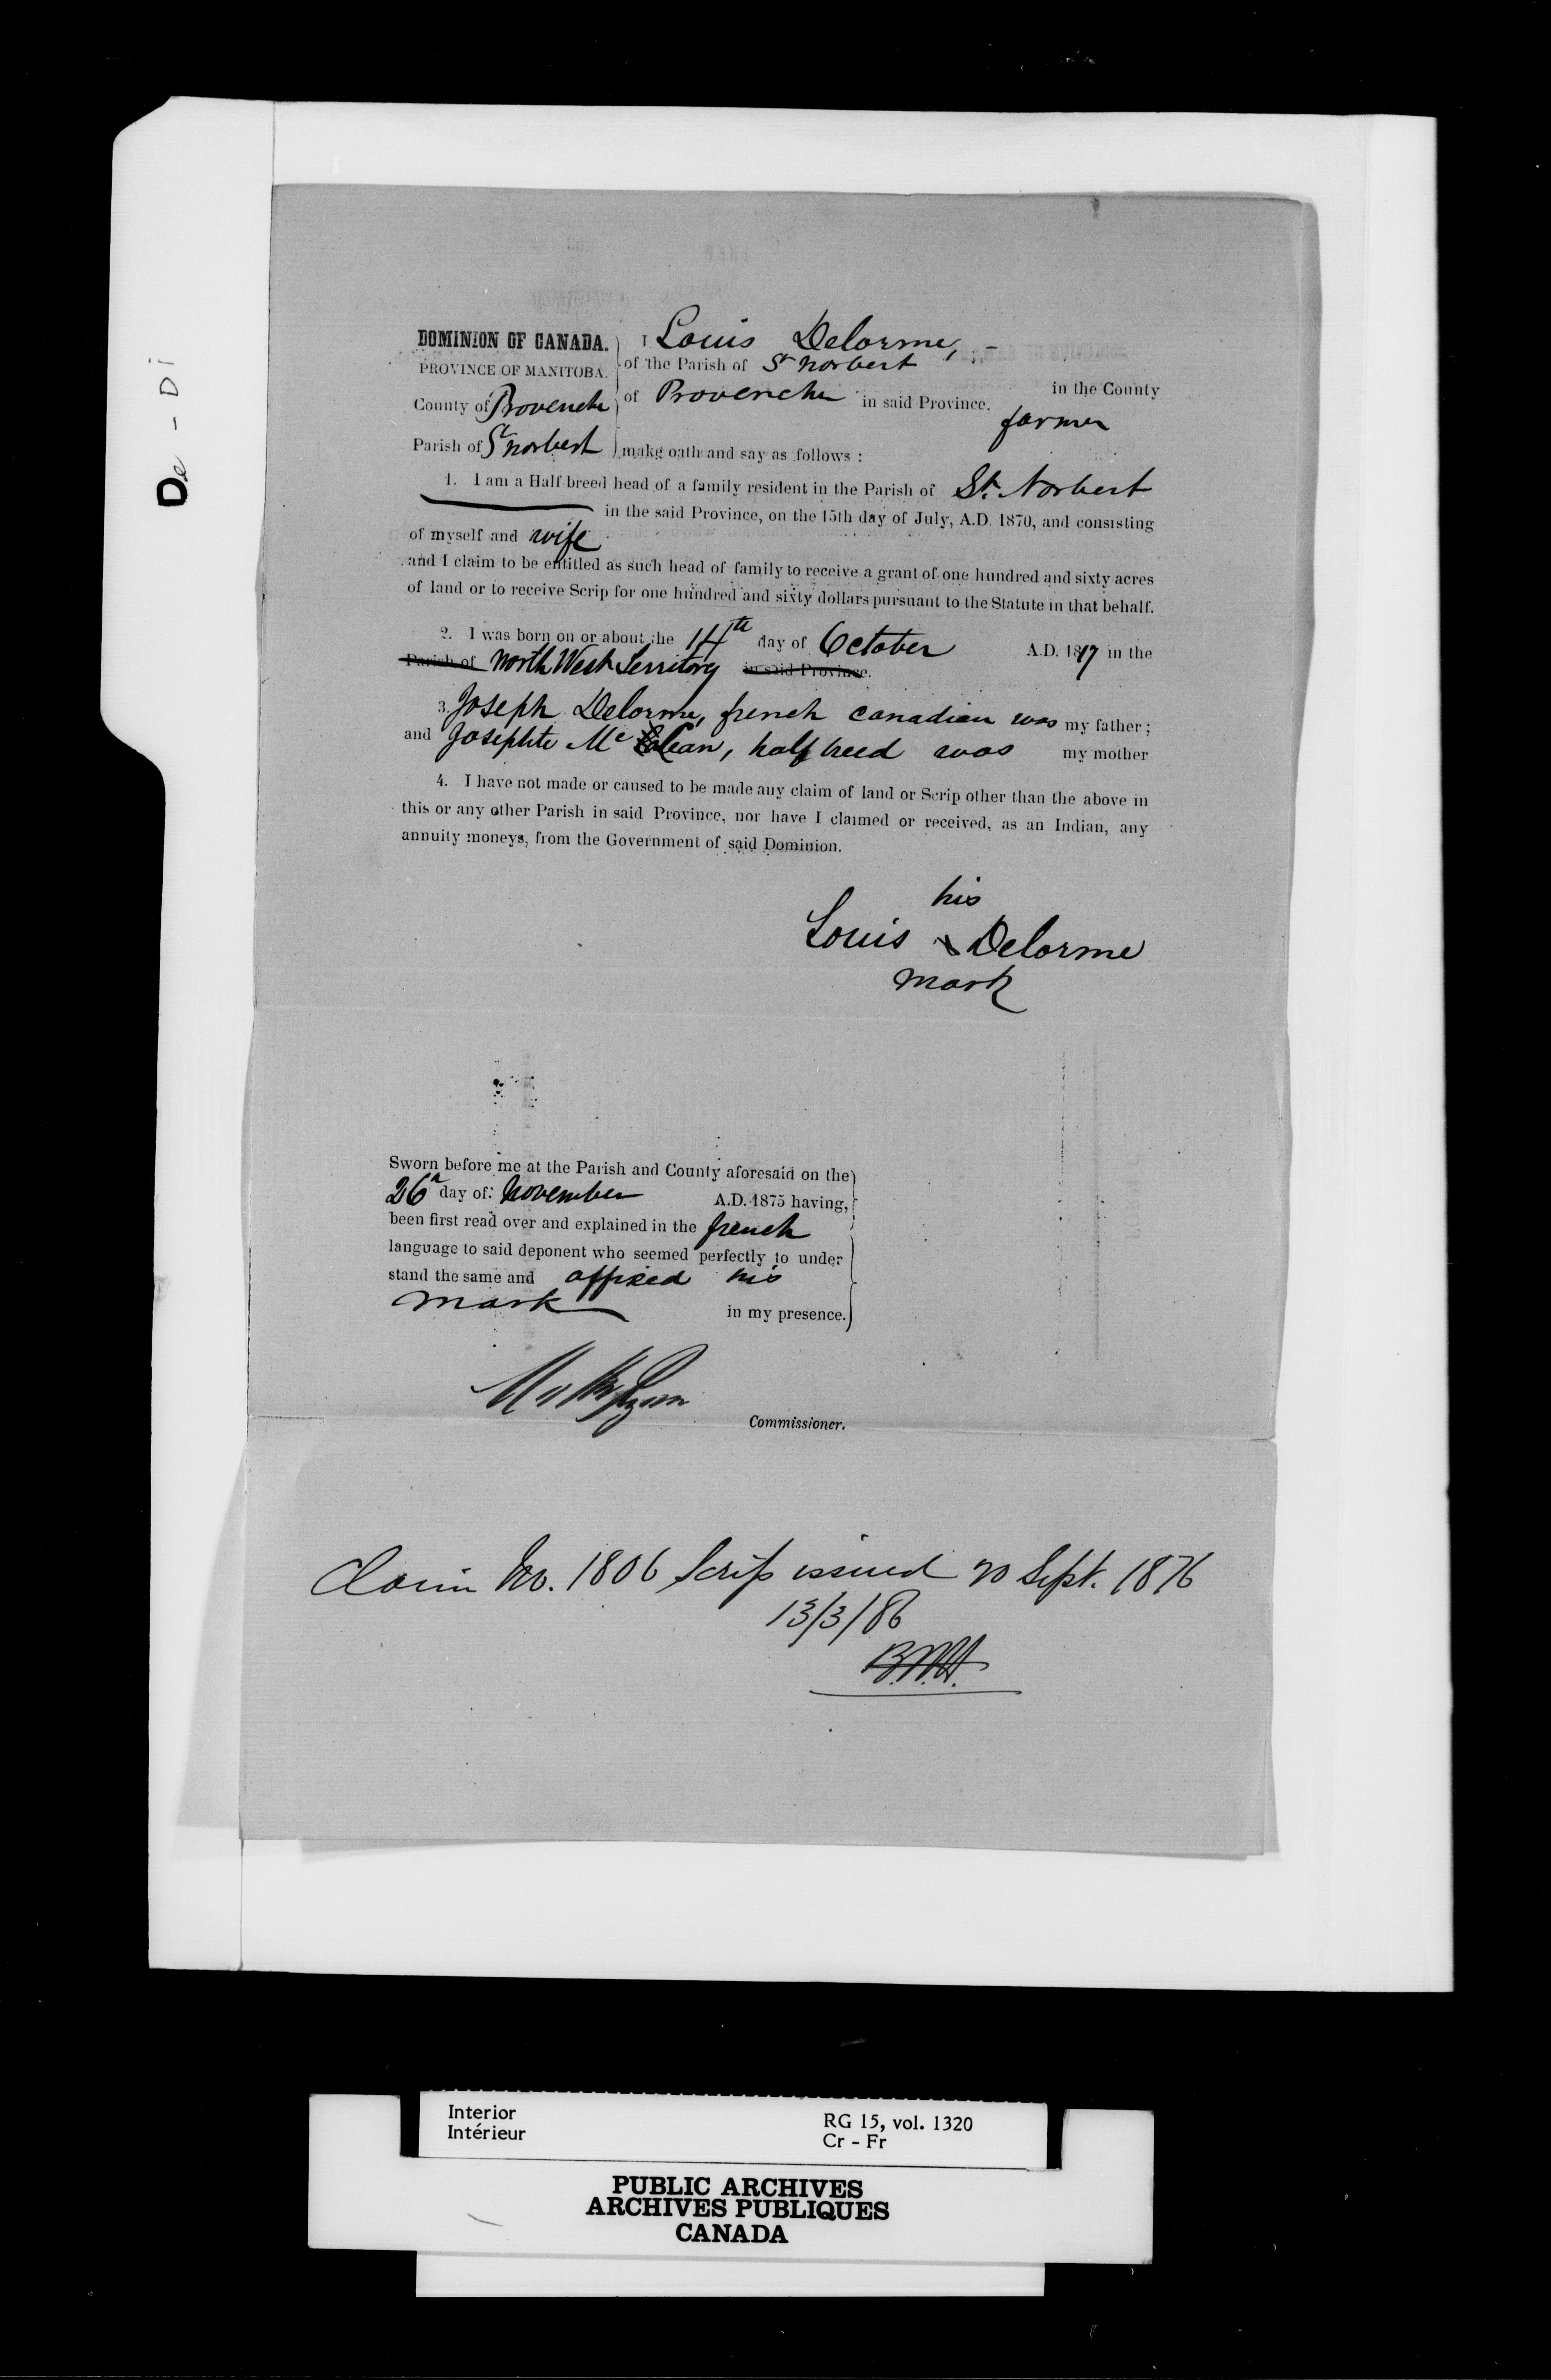 De - Di
DOMINION OF CANADA.
PROVINCE OF MANITOBA.
County of Provencher
Parish of St Norbert
I Louis Delorme, -
of the Parish of St Norbert
in the County
of Provencher in said Province, farmer
make oath and say as follows :
1. I am a Half-breed head of a family resident in the Parish of St. Norbert
in the said Province, on the 15th day of July, A.D. 1870, and consisting
of myself and wife
and I claim to be entitled as such head of family to receive a grant of one hundred and sixty acres
of land or to receive Scrip for one hundred and sixty dollars pursuant to the Statute in that behalf.
2. I was born on or about the 14th day of October A.D. 1817 in the
Parish of North West Territory in said Province.
3. Joseph Delorme, french canadian was my father ;
and Josephte Mc Clean, half breed was my mother
4. I have not made or caused to be made any claim of land or Scrip other than the above in
this or any other Parish in said Province, nor have I claimed or received, as an Indian, any
annuity moneys, from the Government of said Dominion.
his
Louis x Delorme
mark
Sworn before me at the Parish and County aforesaid on the
26th day of November A.D. 1875 having,
been first read over and explained in the french
language to said deponent who seemed perfectly to under
stand the same and affixed his
mark in my presence.
Commissioner.
Claim No. 1806 Scrip issued 20 Sept. 1876
13/3/86
Interior
Intérieur
RG 15, vol. 1320
Cr - Fr
PUBLIC ARCHIVES
ARCHIVES PUBLIQUES
CANADA